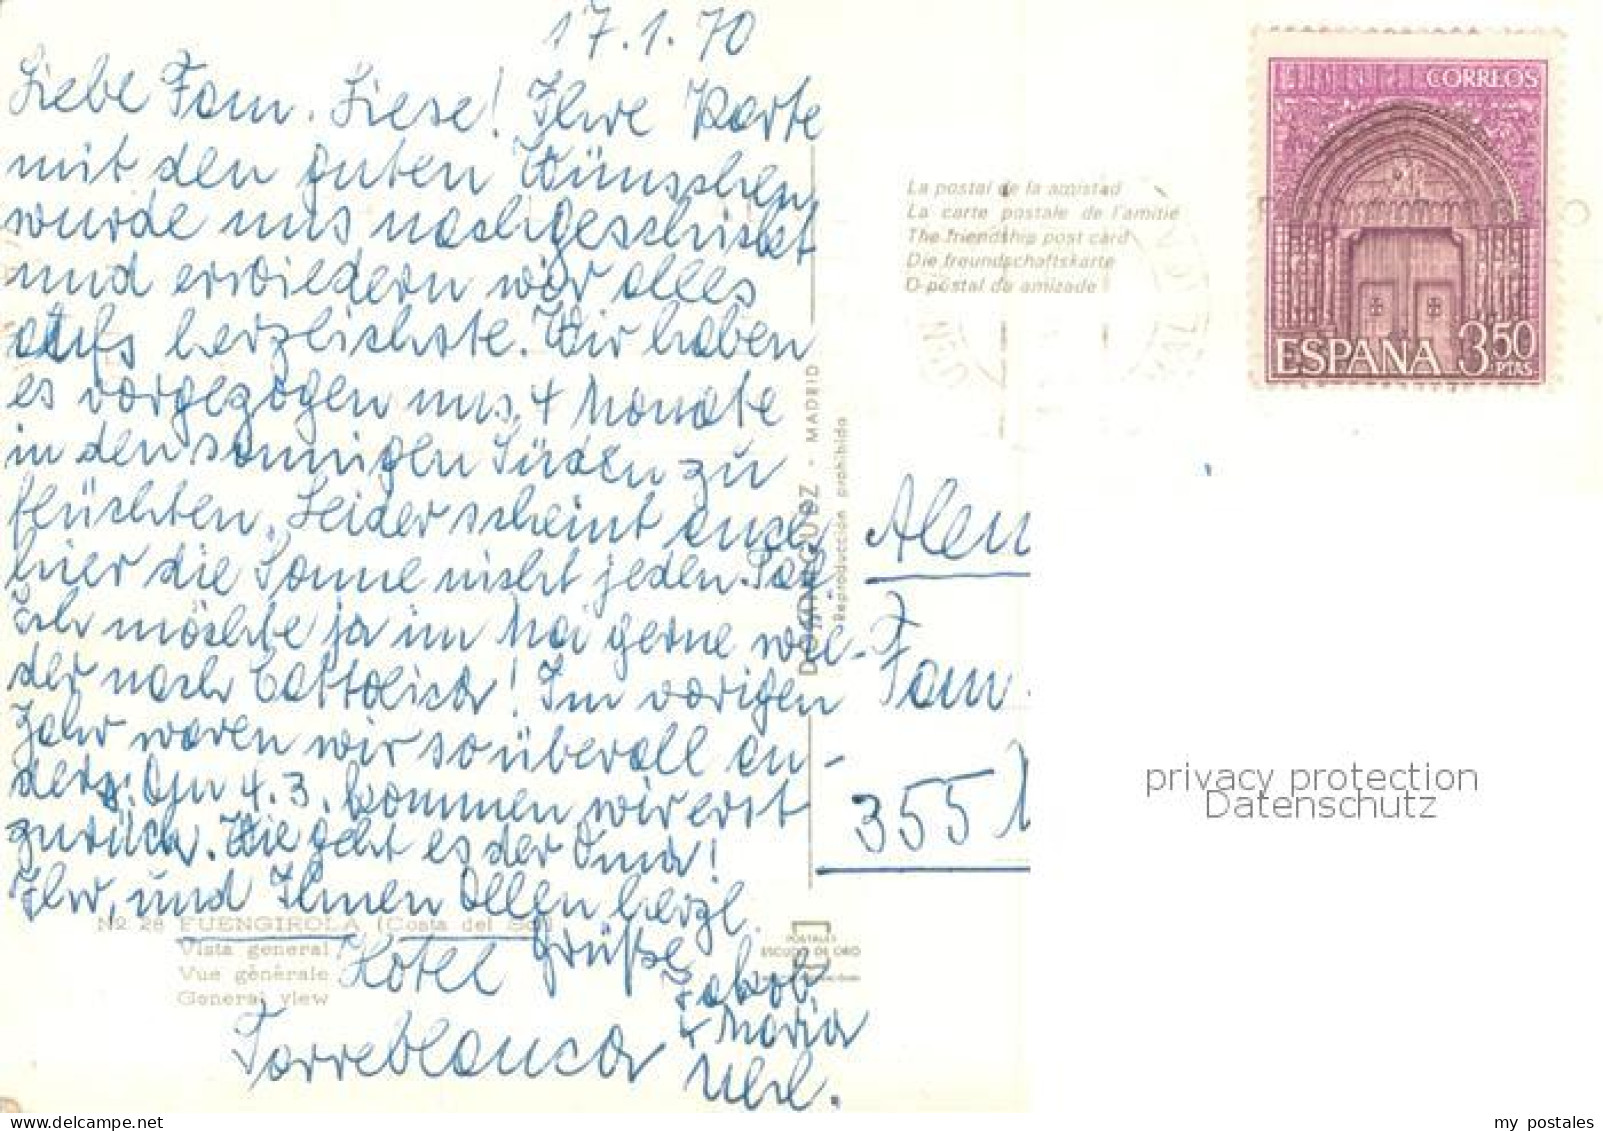 17.1.70
Liebe Fam. Liese! Ihre Karte
mit den guten Wünschen
wurde uns nachgeschickt
und erwiedern wir alles
aufs herzlichste. Wir haben
es vorgezogen uns 4 Monate
in den sonnigen Süden zu
flüchten. Leider scheint auch
hier die Sonne nicht jeden Tag
Ich möchte ja im Mai gerne wie-
der nach Cattolica! Im vorigen
Jahr waren wir so überall an-
ders. Am 4.3. kommen wir erst
zurück. Wie geht es der Oma!
Ihr, und Ihnen Allen herzl.
Grüße
Jakob
+ Maria
Uhl.
Hotel
Torreblanca
Nº 28 FUENGIROLA (Costa del Sol)
Vista general
Vue générale
General view
DOMINGUEZ - MADRID
Reproducción prohibida
POSTALES
ESCUDO DE ORO
La postal de la amistad
La carte postale de l'amitié
The friendship post card
Die freundschaftskarte
O postal da amizade
CORREOS
ESPAÑA 3,50
PTAS.
Alem
Fam.
355
privacy protection
Datenschutz
my postales